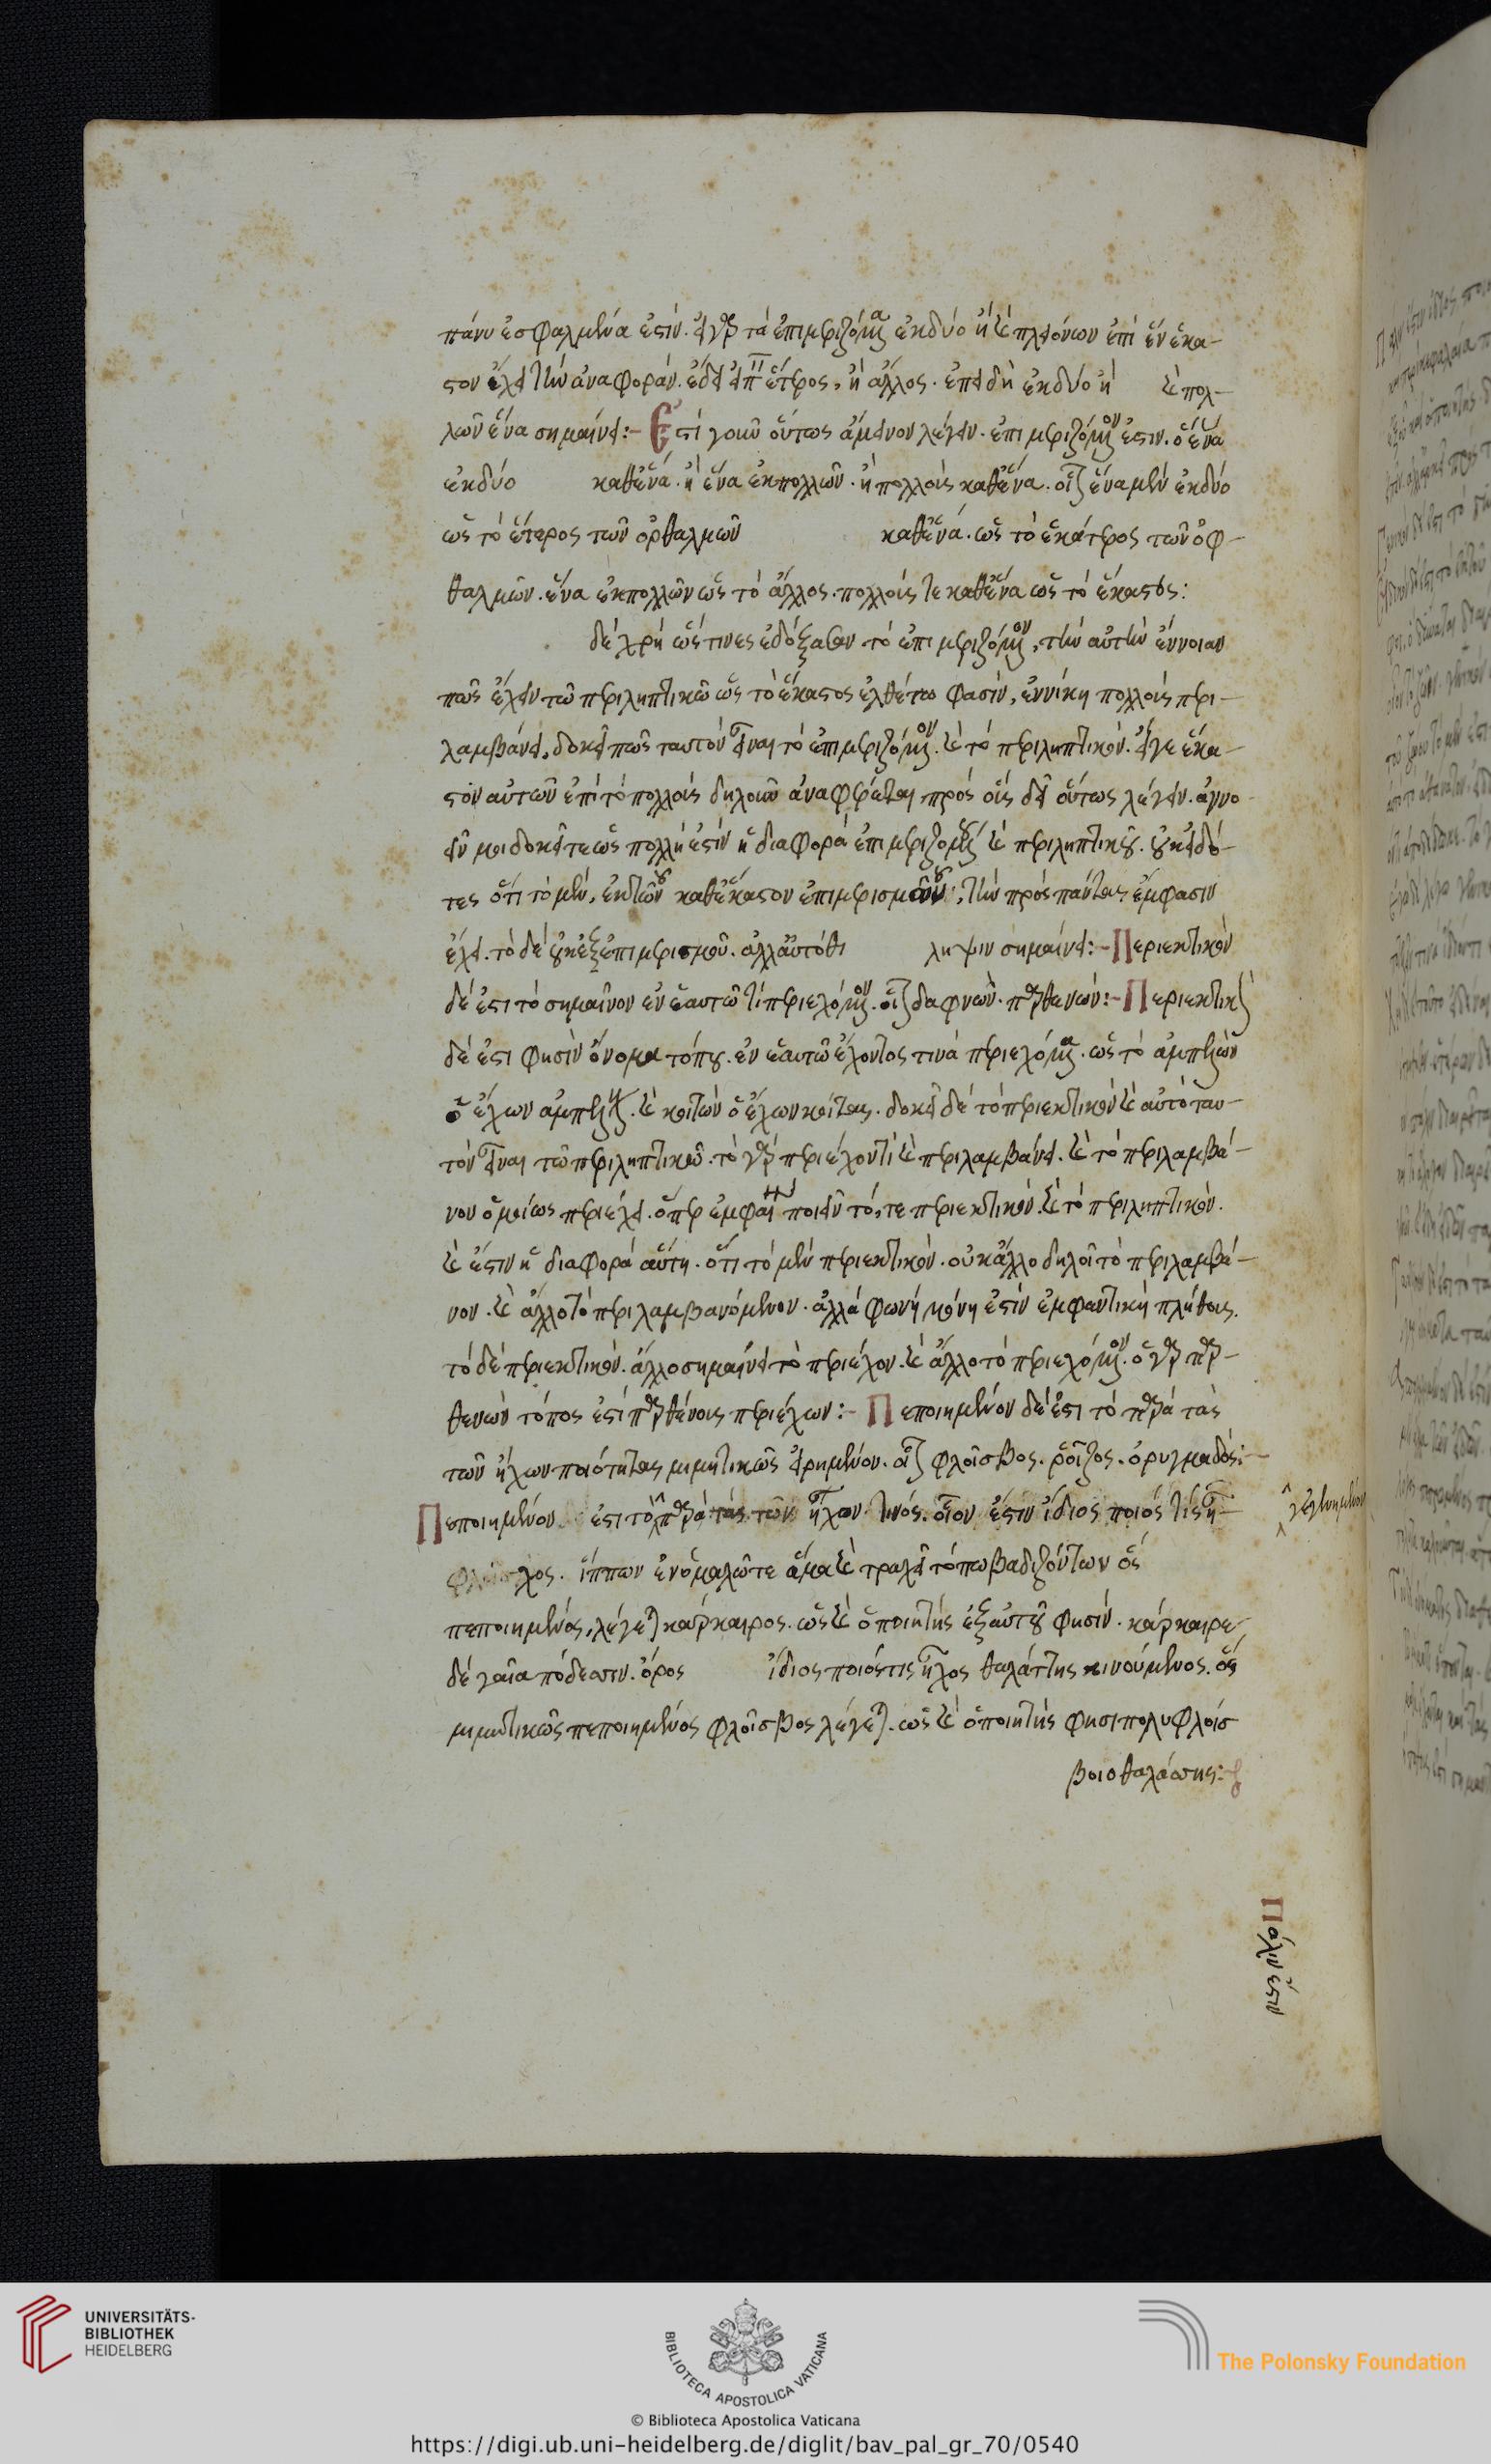 πάνυ ἐσφαλμένα ἐστίν. εἰ γὰρ τὰ ἐπιμεριζόμενα ἐκ δύο ἢ καὶ πλειόνων ἐπὶ ἓν ἕκα-
στον ἔχει τὴν ἀναφοράν. ἕτερος, ἢ ἄλλος. ἐπειδὴ ἐκ δύο ἢ καὶ πολ-
λῶν ἕνα σημαίνει:- Ἔστι γοῦν οὕτως ἄμεινον λέγειν. ἐπιμεριζόμενον ἐστιν. ὃ ἕνα
ἐκ δύο καθ' ἕνα. ἢ ἕνα ἐκ πολλῶν. ἢ πολλοὺς καθ' ἕνα. οἷον ἕνα μὲν ἐκ δύο
ὡς τὸ ἕτερος τῶν ὀφθαλμῶν καθ' ἕνα. ὡς τὸ ἑκάτερος τῶν ὀφ-
θαλμῶν. ἕνα ἐκ πολλῶν ὡς τὸ ἄλλος. πολλοὺς τε καθ' ἕνα ὡς τὸ ἕκαστος:
δὲ χρὴ ὥς τινες ἐδόξασαν τὸ ἐπιμεριζόμενον, τὴν αὐτὴν ἔννοιαν
πως ἔχειν τῷ περιληπτικῷ ὡς τὸ ἕκαστος ἐλθέτω φασὶν, ἐννίκη πολλοὺς περι-
λαμβάνει, δοκεῖ πως ταυτὸν εἶναι τὸ ἐπιμεριζόμενον. καὶ τὸ περιληπτικόν. εἴγε ἕκα-
στον αὐτῶν ἐπὶ τὸ πολλοὺς δηλοῦν ἀναφέρεται, πρὸς οἷς δεῖ οὕτως λέγειν. ἀγνο-
εῖν μοι δοκεῖτε ὡς πολλή ἐστιν ἡ διαφορὰ ἐπιμεριζομένου καὶ περιληπτικοῦ. οὐκ εἰδό-
τες ὅτι τὸ μὲν, ἐκ τῶν καθ' ἕκαστον ἐπιμερισμοῦ, τὴν πρὸς πάντας ἔμφασιν
ἔχει. τὸ δὲ οὐκ ἐξ ἐπιμερισμοῦ. ἀλλ' αὐτόθι ληψιν σημαίνει:- Περιεκτικὸν
δέ ἐστι τὸ σημαῖνον ἐν ἑαυτῷ τί περιεχόμενον. οἷον δαφνών. παρθενών:- Περιεκτικὸν
δέ ἐστι φησὶν ὄνομα τόπου. ἐν ἑαυτῷ ἔχοντος τινὰ περιεχόμενα. ὡς τὸ ἀμπελὼν
ὁ ἔχων ἀμπέλους. καὶ κοιτὼν ὁ ἔχων κοίτας. δοκεῖ δὲ τὸ περιεκτικὸν καὶ αὐτὸ ταυ-
τὸν εἶναι τῷ περιληπτικῷ. τὸ γὰρ περιέχον τί καὶ περιλαμβάνει. καὶ τὸ περιλαμβά-
νον ὁμοίως περιέχει. ὅπερ ποιεῖν τό, τε περιεκτικὸν. καὶ τὸ περιληπτικὸν.
καὶ ἔστιν ἡ διαφορὰ αὕτη. ὅτι τὸ μὲν περιεκτικὸν. οὐκ ἄλλο δηλοῖ τὸ περιλαμβά-
νον. καὶ ἄλλο τὸ περιλαμβανόμενον. ἀλλὰ φωνὴ μόνη ἐστὶν ἐμφαντικὴ πλήθους.
τὸ δὲ περιεκτικὸν. ἄλλο σημαίνει τὸ περιέχον. καὶ ἄλλο τὸ περιεχόμενον. ὁ γὰρ παρ-
θενὼν τόπος ἐστὶ παρθένους περιέχων:- Πεποιημένον δέ ἐστι τὸ παρὰ τὰς
τῶν ἤχων ποιότητας μιμητικῶς εἰρημένον. οἷον φλοῖσβος. ῥοῖζος. ὀρυγμαδός:-
Πεποιημένον ἐστι τὸ παρὰ τὰς τῶν ἤχων τινός. οἷον ἔστιν ἴδιος ποιός τίς ἦ- γεγενημένον
χος. ἵππων ἐν ὁμαλῷ τε ἅμα καὶ τραχεῖ τόπῳ βαδιζόντων ὃς
πεποιημένος, λέγεται κάρκαιρος. ὡς καὶ ὁ ποιητὴς ἐξ αὐτοῦ φησίν. κάρκαιρε
δὲ γαῖα πόδεσσιν. ὅρος ἴδιος ποιός τις ἦχος θαλάττης κινούμενος. ὃς
μιμητικῶς πεποιημένος φλοῖσβος λέγεται. ὡς καὶ ὁ ποιητὴς φησι πολυφλοίσ
βοιο θαλάσσης:
Πάλιν ἔστιν
UNIVERSITÄTS-
BIBLIOTHEK
HEIDELBERG
BIBLIOTECA APOSTOLICA VATICANA
The Polonsky Foundation
© Biblioteca Apostolica Vaticana
https://digi.ub.uni-heidelberg.de/diglit/bav_pal_gr_70/0540